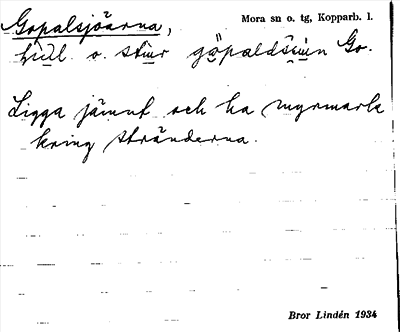 Gopalsjöarna,
Mora sn o. tg, Kopparb. l.
o. Go.
Ligga jämnt och ha myrmark
kring stränderna.
Bror Lindén 1934